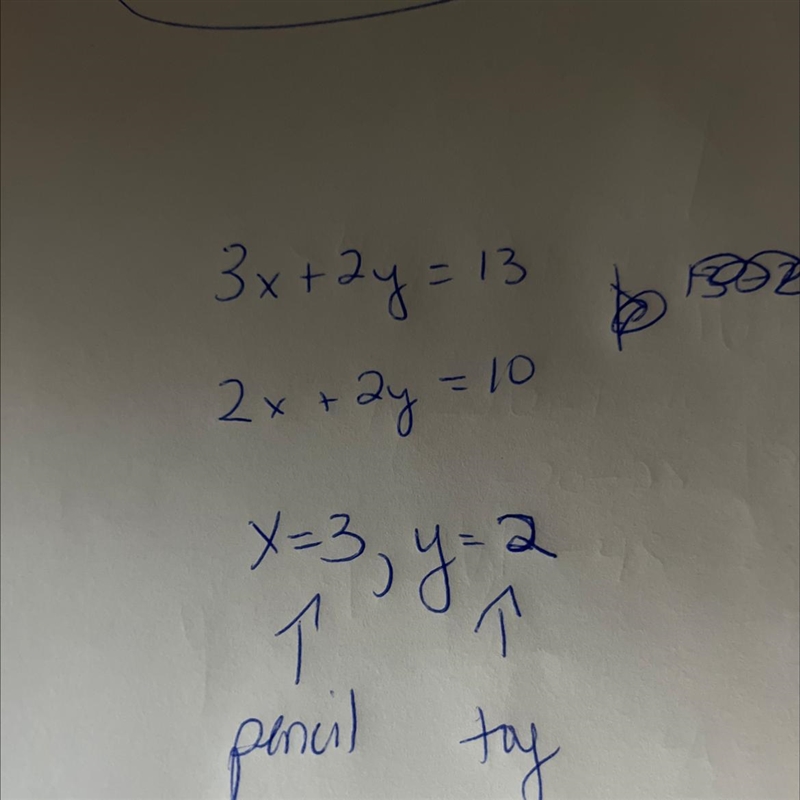 3x + 2y = 13
2x + 2y = 10
x = 3, y = 2
pencil toy